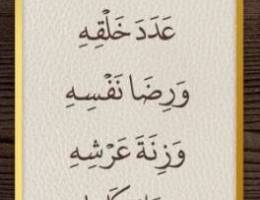 عَدَدَ خَلْقِهِ
وَرِضَا نَفْسِهِ
وَزِنَةَ عَرْشِهِ